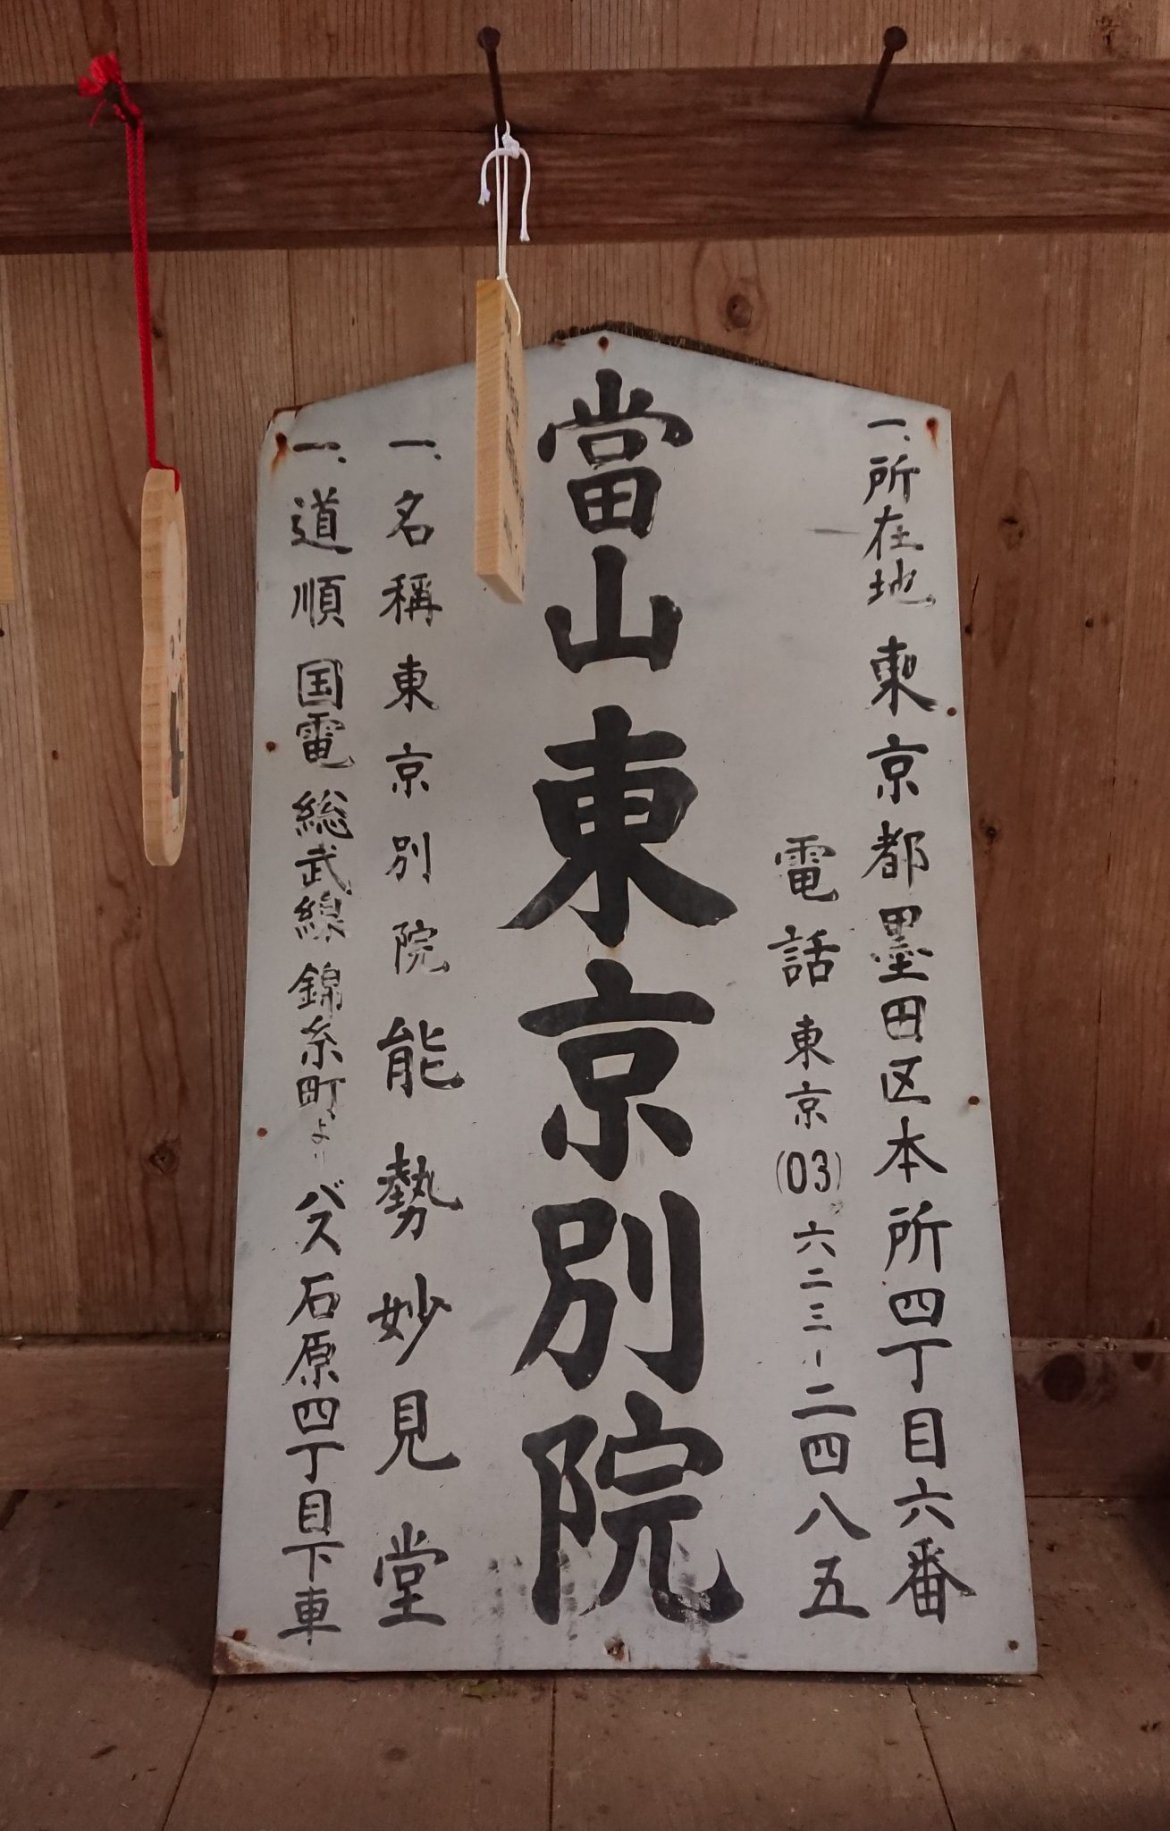 一、所在地 東京都墨田区本所四丁目六番
電話 東京(03)六二三-二四八五
當山東京別院
一、名稱 東京別院能勢妙見堂
一、道順 国電総武線錦糸町より バス石原四丁目下車